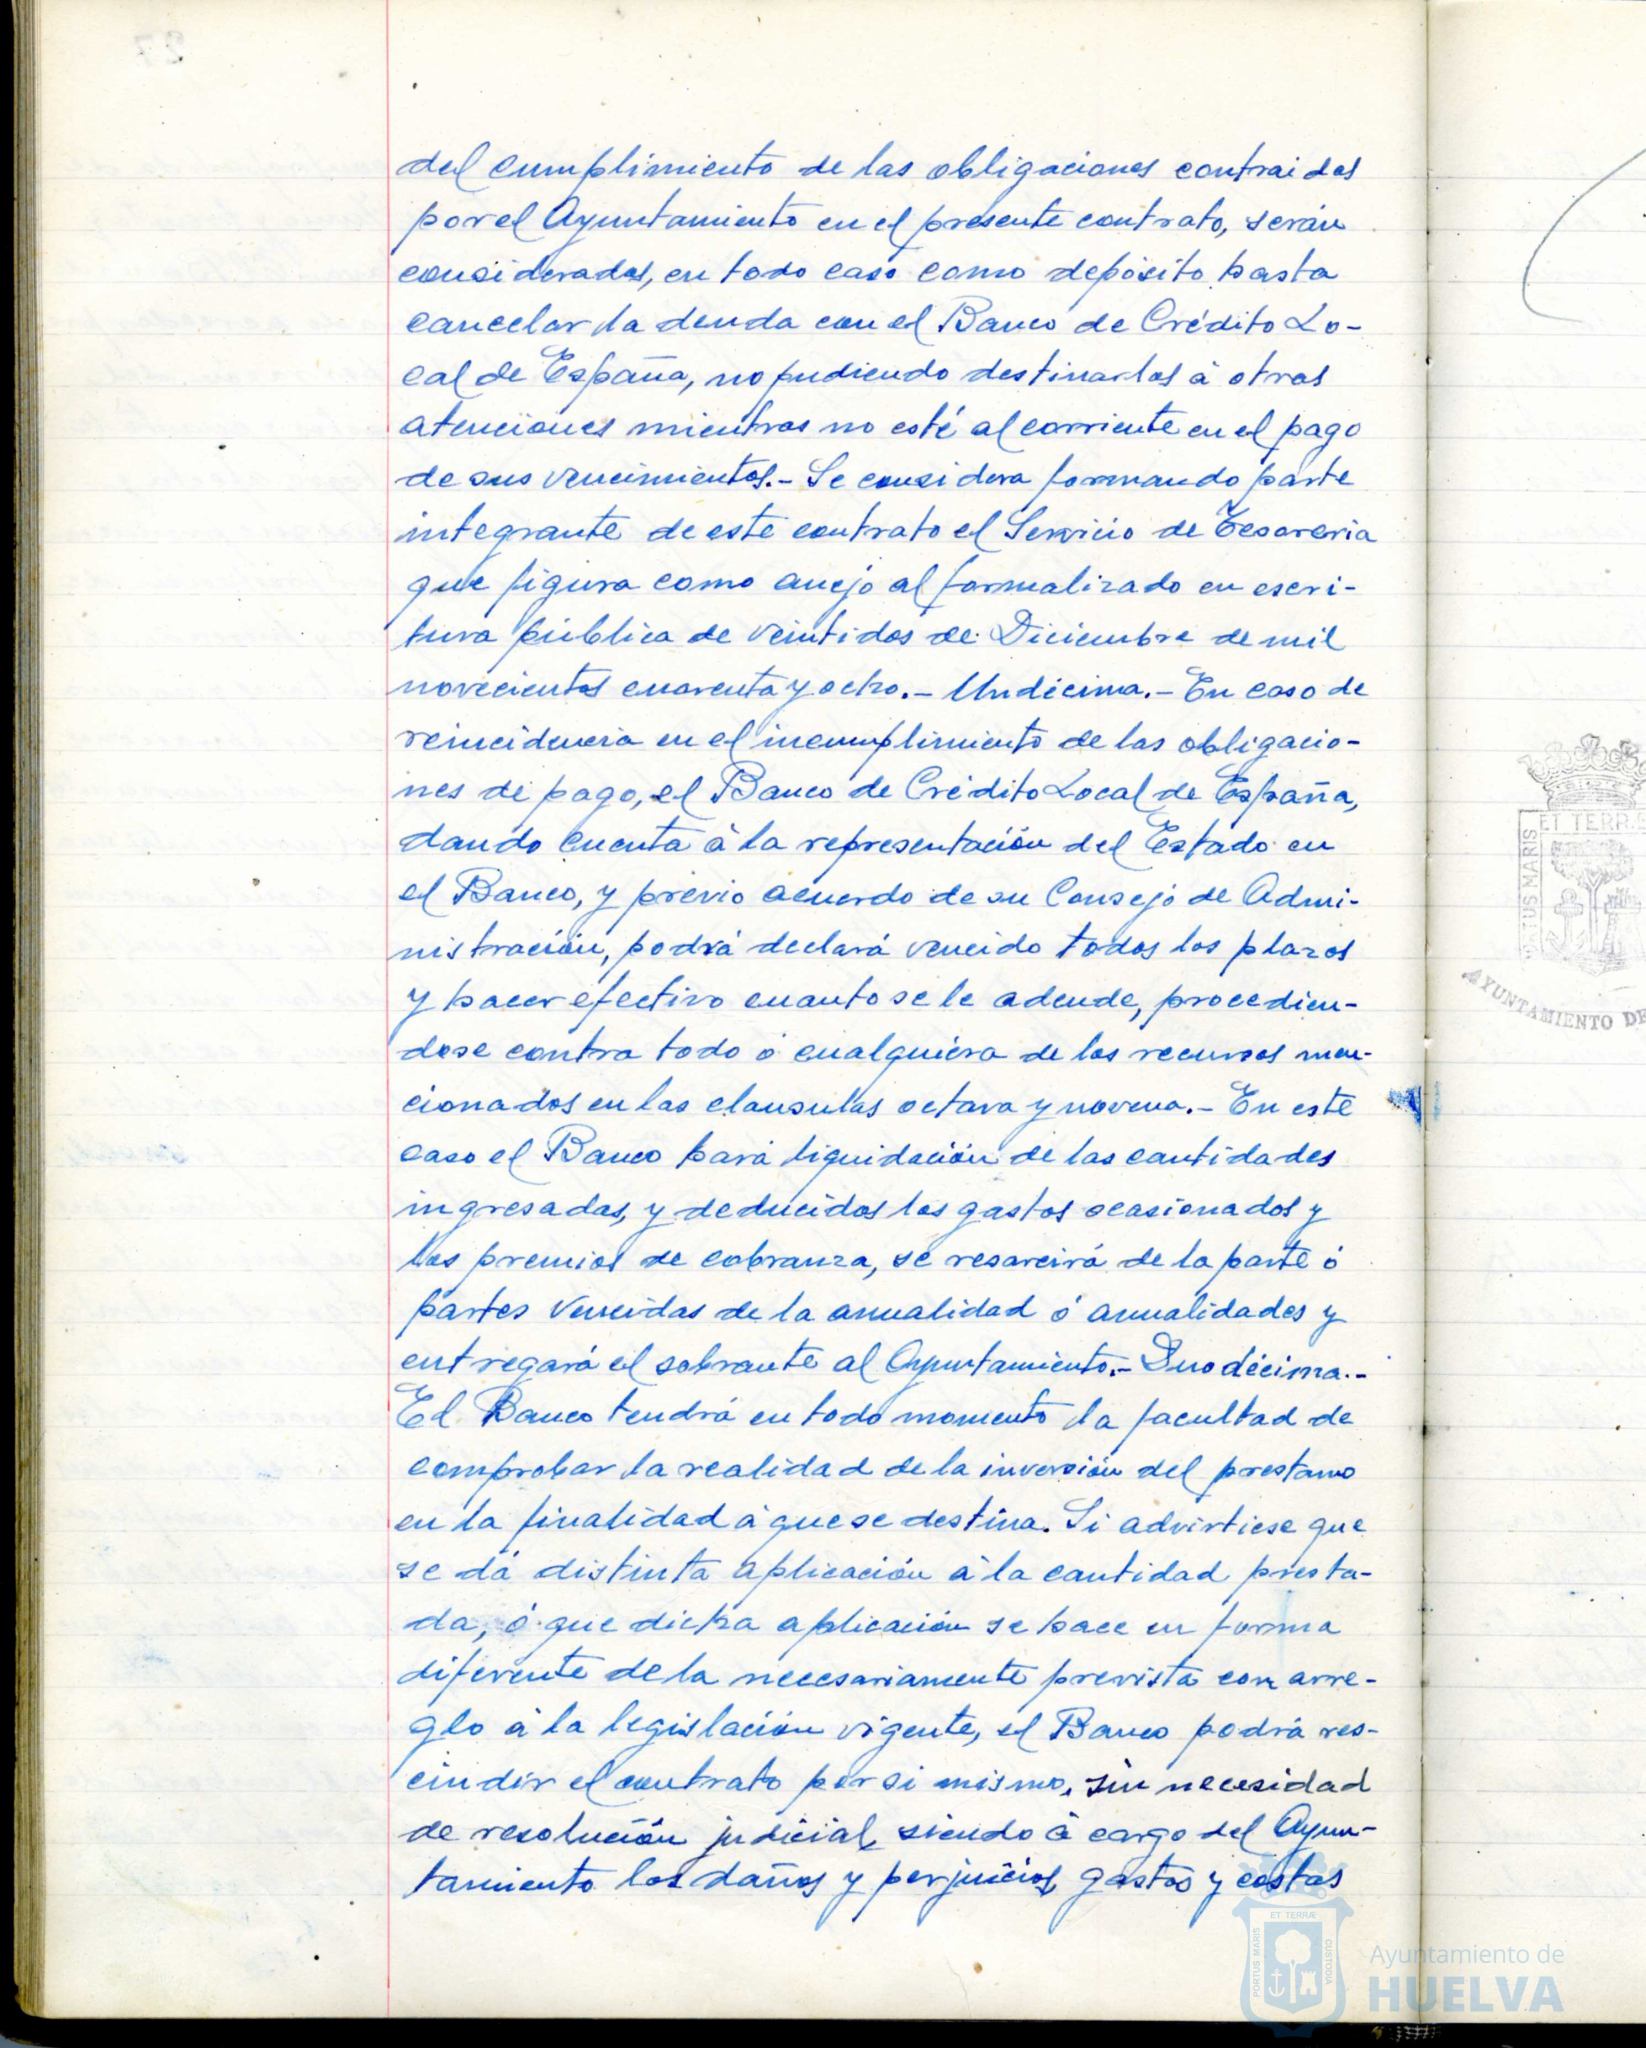 del cumplimiento de las obligaciones contraidas
por el Ayuntamiento en el presente contrato, serán
considerados, en todo caso como depósito hasta
cancelar la deuda con el Banco de Crédito Lo-
cal de España, no pudiendo destinarlos á otras
atenciones mientras no esté al corriente en el pago
de sus vencimientos.- Se considera formando parte
integrante de este contrato el Servicio de Tesoreria
que figura como anejo al formalizado en escri-
tura pública de veintidos de Diciembre de mil
novecientos cuarenta y ocho.- Undécima.- En caso de
reincidencia en el incumplimiento de las obligacio-
nes de pago, el Banco de Crédito Local de España,
dando cuenta á la representación del Estado en
el Banco, y previo acuerdo de su Consejo de Admi-
nistración, podrá declará vencido todos los plazos
y hacer efectivo cuanto se le adeude, procedien-
dose contra todo ó cualquiera de los recursos men-
cionados en las clausulas octava y novena.- En este
caso el Banco hará liquidación de las cantidades
ingresadas, y deducidos los gastos ocasionados y
los premios de cobranza, se resarcirá de la parte ó
partes vencidas de la anualidad ó anualidades y
entregará el sobrante al Ayuntamiento.- Duodécima.-
El Banco tendrá en todo momento la facultad de
comprobar la realidad de la inversión del prestamo
en la finalidad á que se destina. Si advirtiese que
se dá distinta aplicación á la cantidad presta-
da, ó que dicha aplicación se hace en forma
diferente de la necesariamente prevista con arre-
glo á la legislación vigente, el Banco podrá res-
cindir el contrato por si mismo, sin necesidad
de resolución judicial, siendo á cargo del Ayun-
tamiento los daños y perjuicios, gastos y costas
PORTUS MARIS
ET TERRÆ
AYUNTAMIENTO DE
PORTUS MARIS
ET TERRÆ
CUSTODIA
Ayuntamiento de
HUELVA